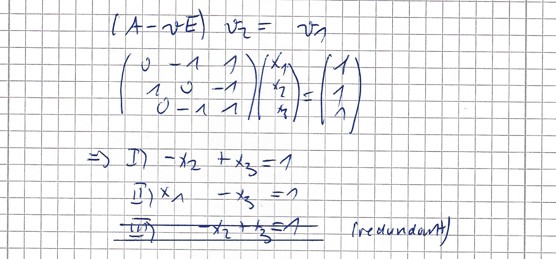 (A-vE) v₂ = v₁
( 0 -1 1 ) ( x₁ ) ( 1 )
( 1 0 -1 ) ( x₂ ) = ( 1 )
( 0 -1 1 ) ( x₃ ) ( 1 )
=> I) -x₂ +x₃ = 1
II) x₁ -x₃ = 1
III) -x₂ + x₃ = 1 (redundant)